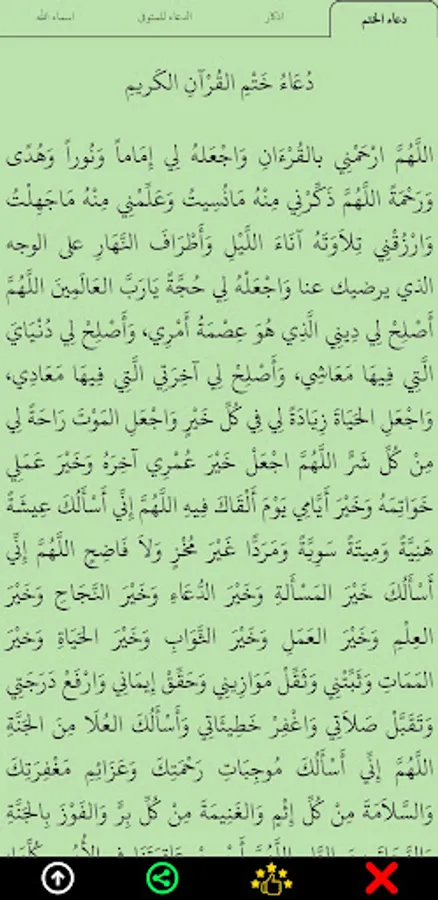 دعاء الختم
اذكار
الدعاء للمتوفي
اسماء الله
دُعَاءُ خَتْمِ القُرْآنِ الكَريمِ
اللَّهُمَّ ارْحَمْنِي بالقُرْءَانِ وَاجْعَلهُ لِي إِمَاماً وَنُوراً وَهُدًى
وَرَحْمَةً اللَّهُمَّ ذَكِّرْنِي مِنْهُ مَانُسِيتُ وَعَلِّمْنِي مِنْهُ مَاجَهِلْتُ
وَارْزُقْنِي تِلاَوَتَهُ آنَاءَ اللَّيْلِ وَأَطْرَافَ النَّهَارِ على الوجه
الذي يرضيك عنا وَاجْعَلْهُ لِي حُجَّةً يَارَبَّ العَالَمِينَ اللَّهُمَّ
أَصْلِحْ لِي دِينِي الَّذِي هُوَ عِصْمَةُ أَمْرِي، وَأَصْلِحْ لِي دُنْيَايَ
الَّتِي فِيهَا مَعَاشِي، وَأَصْلِحْ لِي آخِرَتِي الَّتِي فِيهَا مَعَادِي،
وَاجْعَلِ الحَيَاةَ زِيَادَةً لِي فِي كُلِّ خَيْرٍ وَاجْعَلِ المَوْتَ رَاحَةً لِي
مِنْ كُلِّ شَرٍّ اللَّهُمَّ اجْعَلْ خَيْرَ عُمْرِي آخِرَهُ وَخَيْرَ عَمَلِي
خَوَاتِمَهُ وَخَيْرَ أَيَّامِي يَوْمَ أَلْقَاكَ فِيهِ اللَّهُمَّ إِنِّي أَسْأَلُكَ عِيشَةً
هَنِيَّةً وَمِيتَةً سَوِيَّةً وَمَرَدًّا غَيْرَ مُخْزٍ وَلاَ فَاضِحٍ اللَّهُمَّ إِنِّي
أَسْأَلُكَ خَيْرَ المَسْأَلةِ وَخَيْرَ الدُّعَاءِ وَخَيْرَ النَّجَاحِ وَخَيْرَ
العِلْمِ وَخَيْرَ العَمَلِ وَخَيْرَ الثَّوَابِ وَخَيْرَ الحَيَاةِ وَخيْرَ
المَمَاتِ وَثَبِّتْنِي وَثَقِّلْ مَوَازِينِي وَحَقِّقْ إِيمَانِي وَارْفَعْ دَرَجَتِي
وَتَقَبَّلْ صَلاَتِي وَاغْفِرْ خَطِيئَاتِي وَأَسْأَلُكَ العُلَا مِنَ الجَنَّةِ
اللَّهُمَّ إِنِّي أَسْأَلُكَ مُوجِبَاتِ رَحْمَتِكَ وَعَزَائِمِ مَغْفِرَتِكَ
وَالسَّلاَمَةَ مِنْ كُلِّ إِثْمٍ وَالغَنِيمَةَ مِنْ كُلِّ بِرٍّ وَالفَوْزَ بِالجَنَّةِ